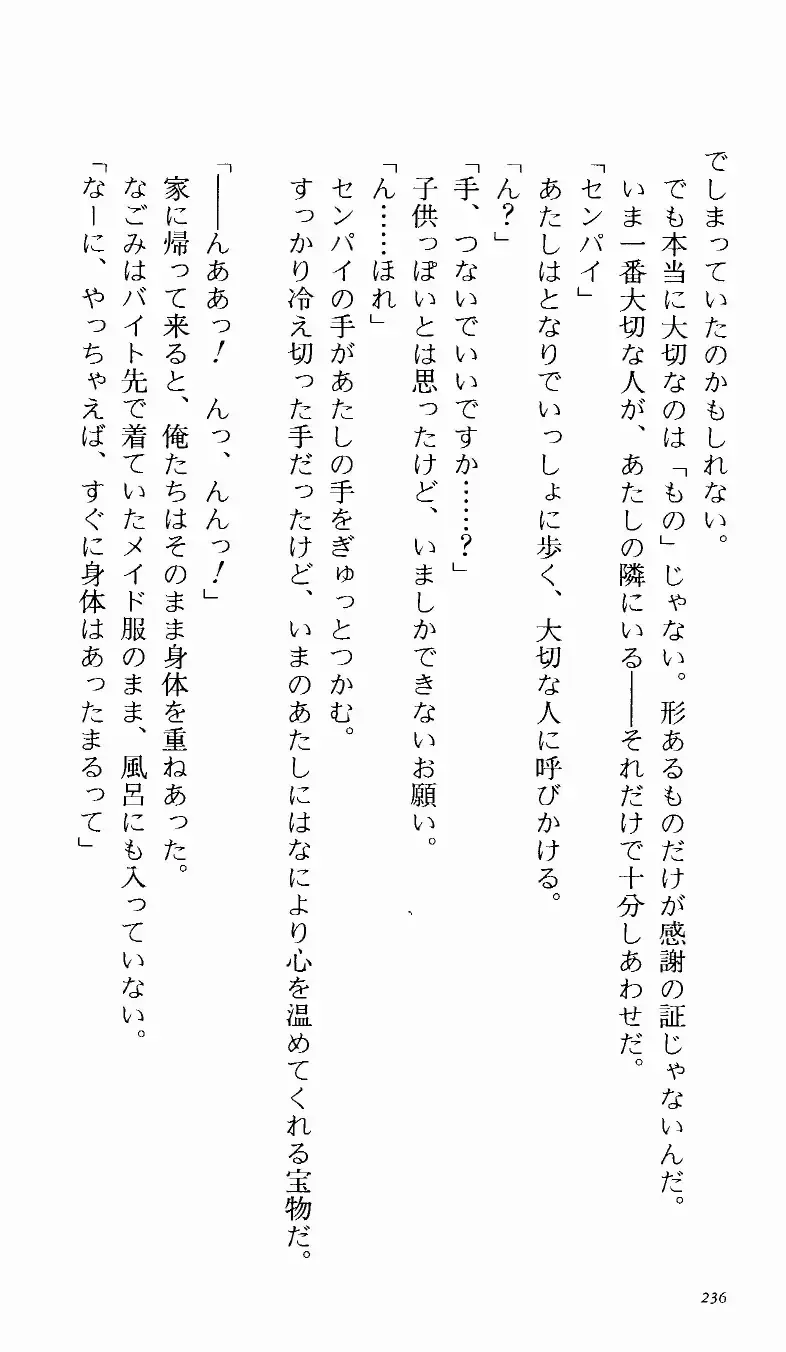 でしまっていたのかもしれない。
でも本当に大切なのは「もの」じゃない。形あるものだけが感謝の証じゃないんだ。
いま一番大切な人が、あたしの隣にいる――それだけで十分しあわせだ。
「センパイ」
あたしはとなりでいっしょに歩く、大切な人に呼びかける。
「ん？」
「手、つないでいいですか……？」
子供っぽいとは思ったけど、いましかできないお願い。
「ん……ほれ」
センパイの手があたしの手をぎゅっとつかむ。
すっかり冷え切った手だったけど、いまのあたしにはなにより心を温めてくれる宝物だ。
「――んああっ！　んっ、んんっ！」
家に帰って来ると、俺たちはそのまま身体を重ねあった。
なごみはバイト先で着ていたメイド服のまま、風呂にも入っていない。
「なーに、やっちゃえば、すぐに身体はあったまるって」
236